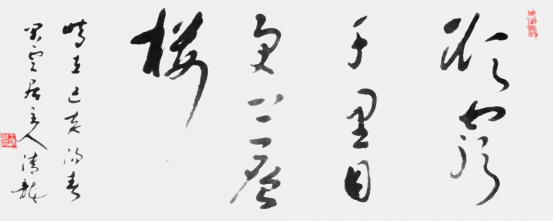 欲穷
千里目
更上一层
楼
时在己亥初春
墨云居主人清龙